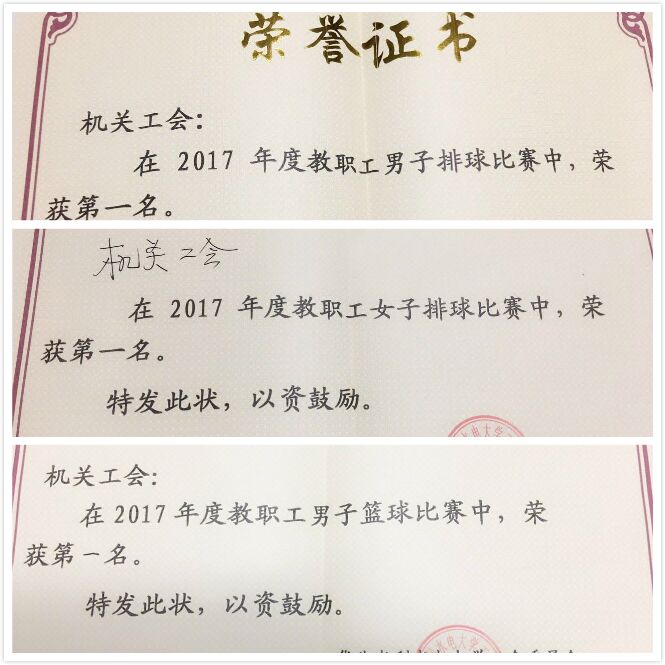 荣誉证书
机关工会：
在 2017 年度教职工男子排球比赛中，荣
获第一名。
机关工会
在 2017 年度教职工女子排球比赛中，荣
获第一名。
特发此状，以资鼓励。
水电大学
机关工会：
在 2017 年度教职工男子篮球比赛中，荣
获第一名。
特发此状，以资鼓励。
水电大学